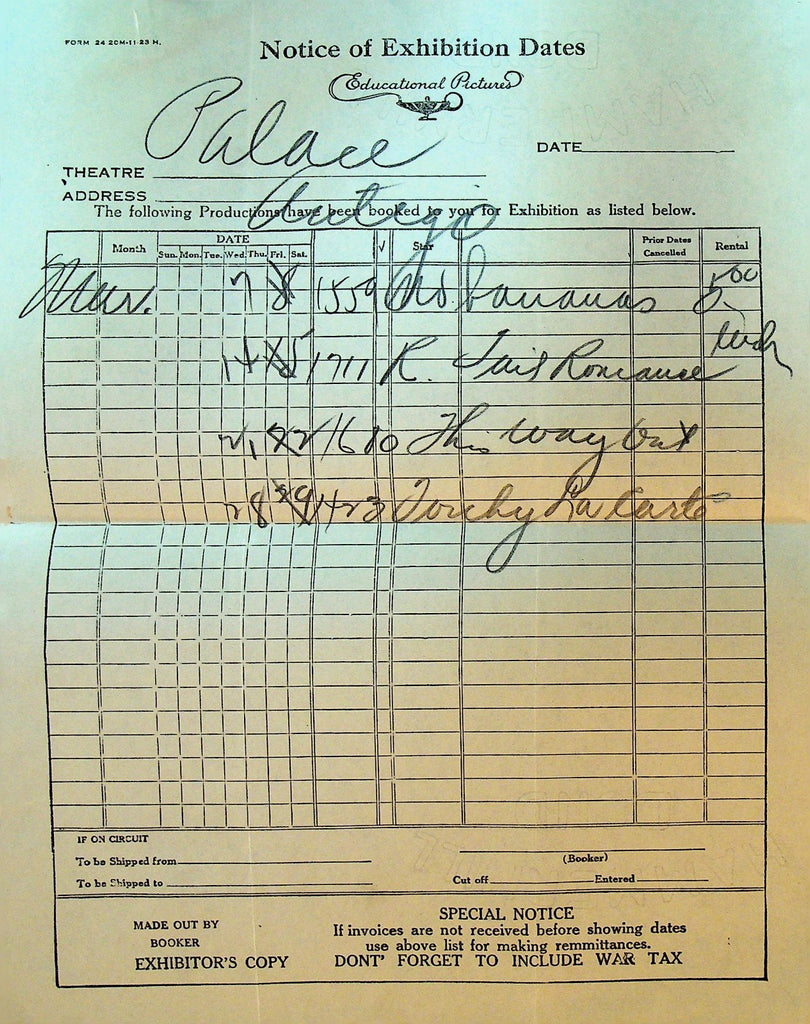 FORM 24 20M-11-23 H.
Notice of Exhibition Dates
Educational Pictures
THEATRE Palace
DATE
ADDRESS Antigo
The following Productions have been booked to you for Exhibition as listed below.
Month DATE Sun. Mon. Tue. Wed. Thu. Fri. Sat. √ Star Prior Dates Cancelled Rental
Mar. 7 8 1559 No bananas 5.00
14 15 1711 R. Tail Romance each
21 22 1680 This Way Out
28 29 1423 Torchy La Carte
IF ON CIRCUIT
To be Shipped from
(Booker)
To be Shipped to
Cut off Entered
MADE OUT BY
BOOKER
EXHIBITOR'S COPY
SPECIAL NOTICE
If invoices are not received before showing dates
use above list for making remmittances.
DONT' FORGET TO INCLUDE WAR TAX